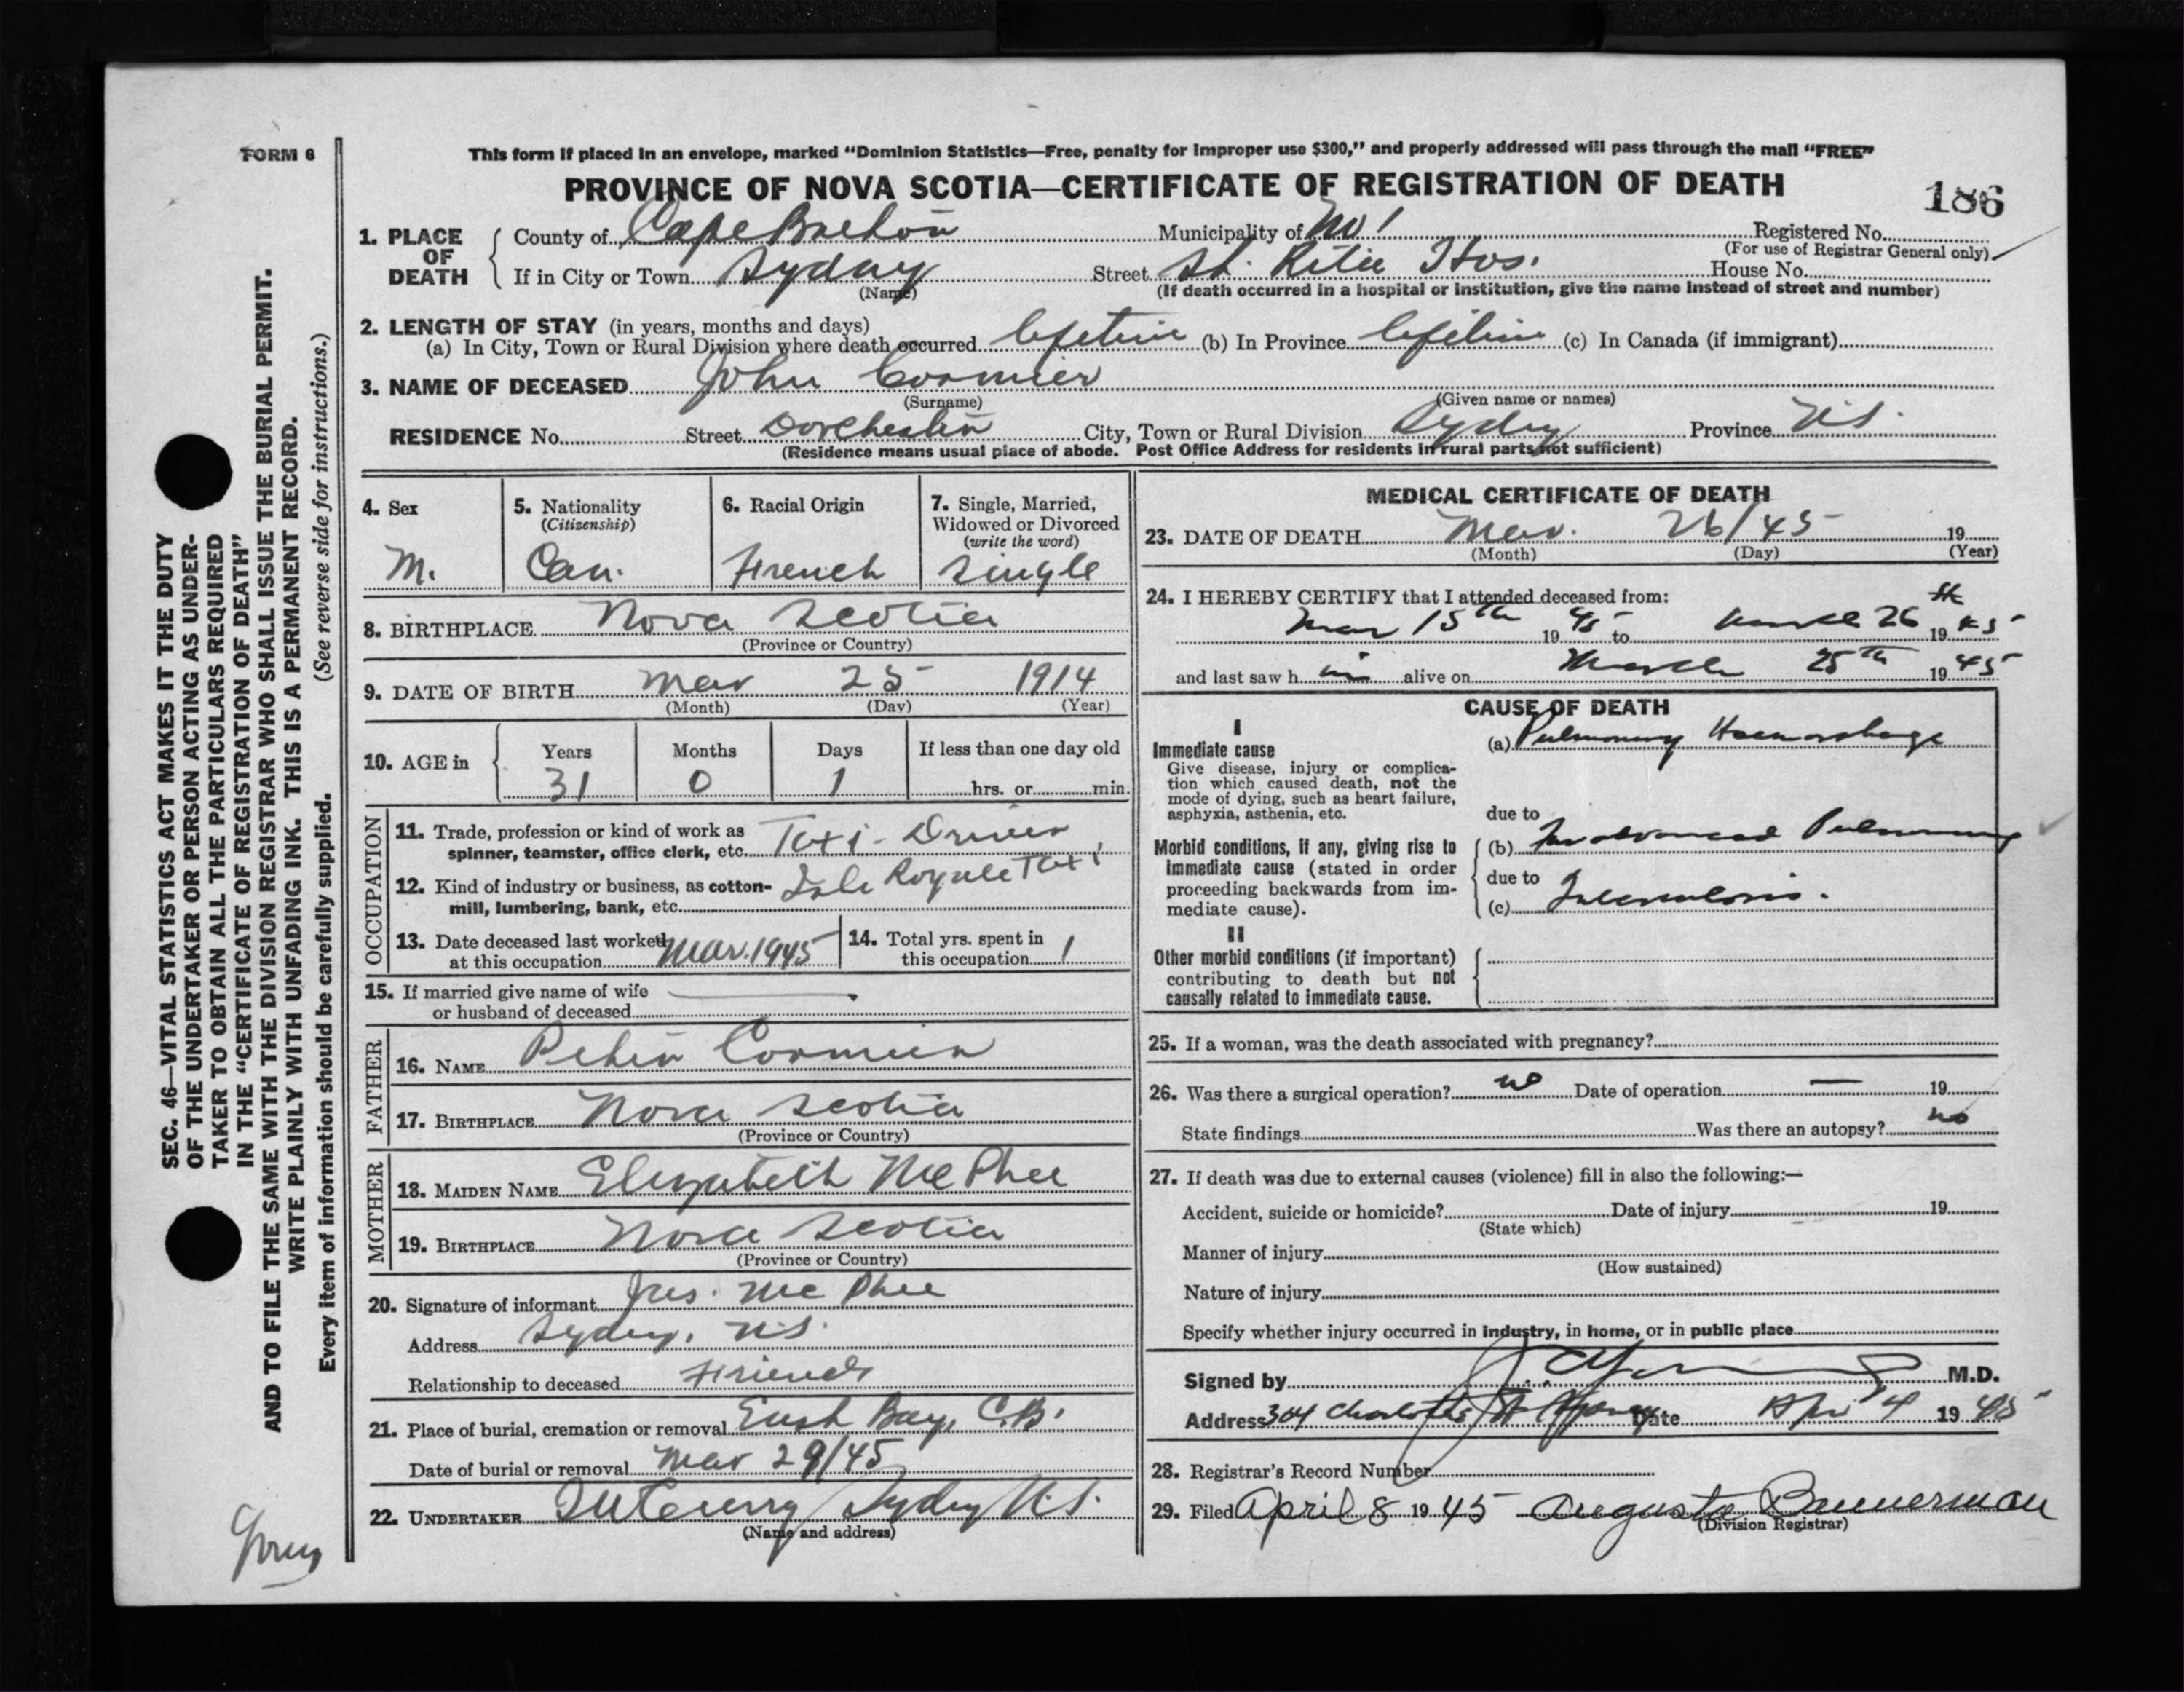 FORM 6
This form if placed in an envelope, marked “Dominion Statistics—Free, penalty for improper use $300,” and properly addressed will pass through the mail “FREE”
PROVINCE OF NOVA SCOTIA—CERTIFICATE OF REGISTRATION OF DEATH
186
1. PLACE OF DEATH
County of Cape Breton Municipality of No 1 Registered No.
(For use of Registrar General only)
If in City or Town Sydney Street St. Rita Hos. House No.
(Name) (If death occurred in a hospital or institution, give the name instead of street and number)
2. LENGTH OF STAY (in years, months and days)
(a) In City, Town or Rural Division where death occurred lifetime (b) In Province lifetime (c) In Canada (if immigrant)
3. NAME OF DECEASED John Cormier
(Surname) (Given name or names)
RESIDENCE No. Street Dorchester City, Town or Rural Division Sydney Province N.S.
(Residence means usual place of abode. Post Office Address for residents in rural parts not sufficient)
4. Sex
M.
5. Nationality
(Citizenship)
Can.
6. Racial Origin
French
7. Single, Married,
Widowed or Divorced
(write the word)
Single
8. BIRTHPLACE Nova Scotia
(Province or Country)
9. DATE OF BIRTH Mar 25 1914
(Month) (Day) (Year)
10. AGE in
Years Months Days If less than one day old
31 0 1 hrs. or min.
OCCUPATION
11. Trade, profession or kind of work as
spinner, teamster, office clerk, etc. Taxi-Driver
12. Kind of industry or business, as cotton-
mill, lumbering, bank, etc. Isle Royale Taxi
13. Date deceased last worked
at this occupation Mar. 1945
14. Total yrs. spent in
this occupation 1
15. If married give name of wife
or husband of deceased
FATHER
16. NAME Peter Cormier
17. BIRTHPLACE Nova Scotia
(Province or Country)
MOTHER
18. MAIDEN NAME Elizabeth McPhee
19. BIRTHPLACE Nova Scotia
(Province or Country)
20. Signature of informant Jas. McPhee
Address Sydney, N.S.
Relationship to deceased Friend
21. Place of burial, cremation or removal East Bay, C.B.
Date of burial or removal Mar 29/45
22. UNDERTAKER Sydney N.S.
(Name and address)
MEDICAL CERTIFICATE OF DEATH
23. DATE OF DEATH Mar. 26/45 19
(Month) (Day) (Year)
24. I HEREBY CERTIFY that I attended deceased from:
Mar 15th 1945 to March 26th 1945
and last saw him alive on March 25th 1945
CAUSE OF DEATH
I
Immediate cause
Give disease, injury or complica-
tion which caused death, not the
mode of dying, such as heart failure,
asphyxia, asthenia, etc.
(a) Pulmonary Haemorrhage
due to
Morbid conditions, if any, giving rise to
immediate cause (stated in order
proceeding backwards from im-
mediate cause).
(b) Far advanced Pulmonary
due to
(c) Tuberculosis.
II
Other morbid conditions (if important)
contributing to death but not
causally related to immediate cause.
25. If a woman, was the death associated with pregnancy?
26. Was there a surgical operation? no Date of operation — 19
State findings Was there an autopsy? no
27. If death was due to external causes (violence) fill in also the following:—
Accident, suicide or homicide? Date of injury 19
(State which)
Manner of injury
(How sustained)
Nature of injury
Specify whether injury occurred in industry, in home, or in public place
Signed by M.D.
Address 304 Charlotte St Sydney Date Apr 4 1945
28. Registrar's Record Number
29. Filed April 8 1945 Augusta Bannerman
(Division Registrar)
SEC. 46—VITAL STATISTICS ACT MAKES IT THE DUTY
OF THE UNDERTAKER OR PERSON ACTING AS UNDER-
TAKER TO OBTAIN ALL THE PARTICULARS REQUIRED
IN THE “CERTIFICATE OF REGISTRATION OF DEATH”
AND TO FILE THE SAME WITH THE DIVISION REGISTRAR WHO SHALL ISSUE THE BURIAL PERMIT.
WRITE PLAINLY WITH UNFADING INK. THIS IS A PERMANENT RECORD.
Every item of information should be carefully supplied. (See reverse side for instructions.)